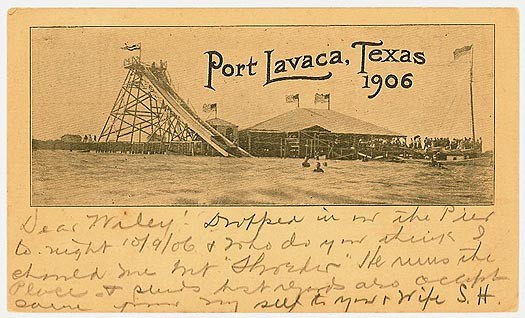 Port Lavaca, Texas
1906
Dear Wiley! Dropped in on the Pier
to-night 10/9/06 & who do you think I
should me but "Shroeder" He runs the
Place & sends best regards also accept
same from my self to you & Wife S.H.